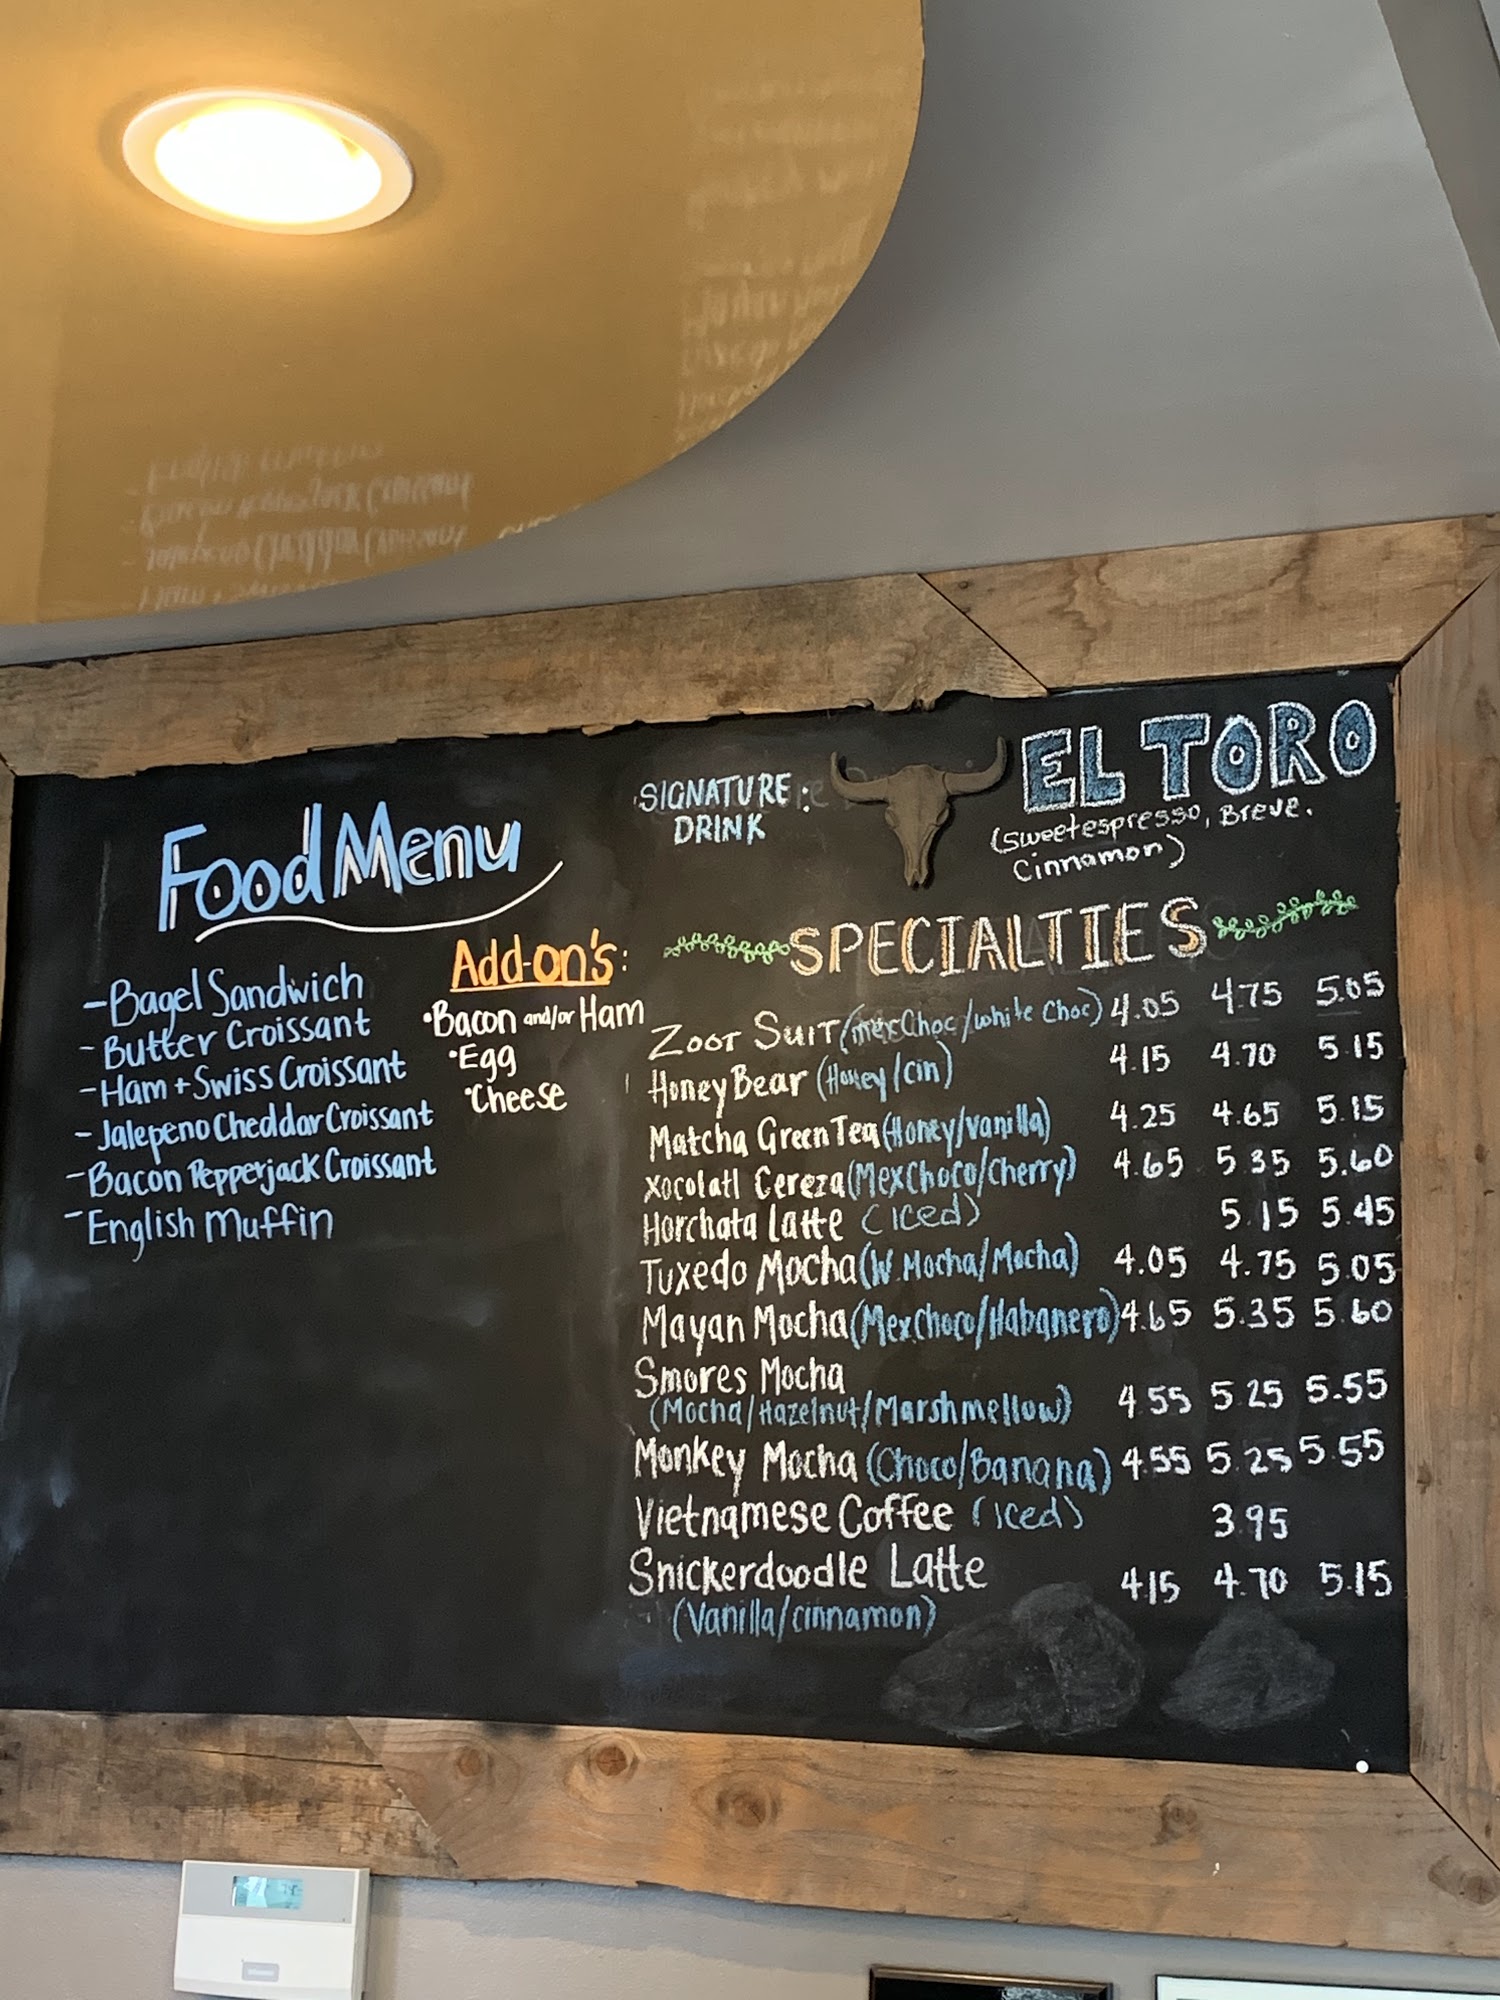 Food Menu
- Bagel Sandwich
- Butter Croissant
- Ham + Swiss Croissant
- Jalepeno Cheddar Croissant
- Bacon Pepperjack Croissant
- English Muffin
Add-on's:
• Bacon and/or Ham
• Egg
• Cheese
SIGNATURE :
DRINK
EL TORO
(sweet espresso, Breve.
Cinnamon)
SPECIALTIES
Zoot Suit (mexChoc/white Choc) 4.05 4.75 5.05
Honey Bear (Honey/cin) 4.15 4.70 5.15
Matcha Green Tea (Honey/vanilla) 4.25 4.65 5.15
Xocolatl Cereza (MexChoco/Cherry) 4.65 5.35 5.60
Horchata Latte (Iced) 5.15 5.45
Tuxedo Mocha (W.Mocha/Mocha) 4.05 4.75 5.05
Mayan Mocha (MexChoco/Habanero) 4.65 5.35 5.60
Smores Mocha
(Mocha/Hazelnut/Marshmellow) 4.55 5.25 5.55
Monkey Mocha (Choco/Banana) 4.55 5.25 5.55
Vietnamese Coffee (Iced) 3.95
Snickerdoodle Latte 4.15 4.70 5.15
(Vanilla/cinnamon)